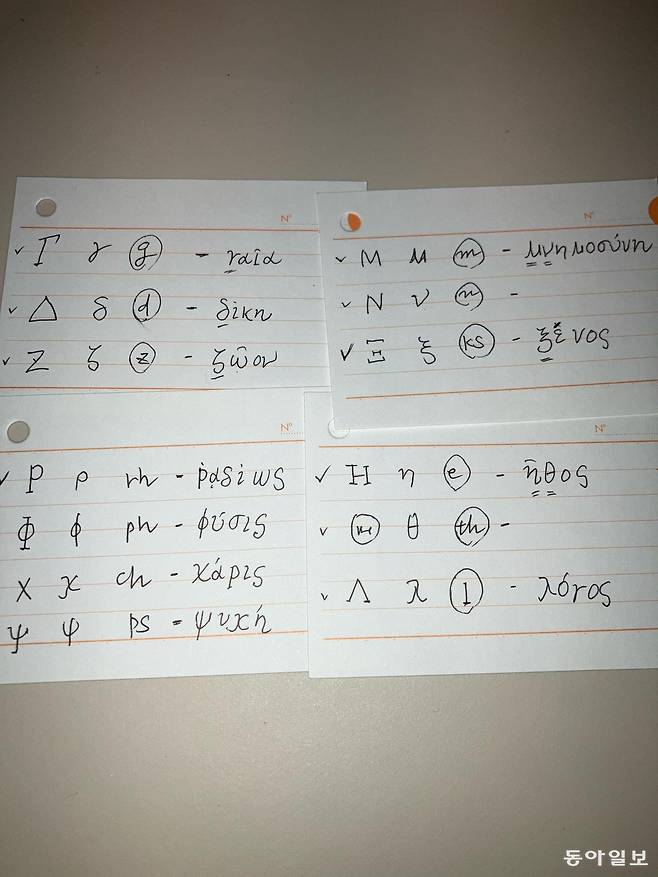 N°
Γ γ g - γαῖα
Δ δ d - δίκη
Ζ ζ z - ζῶον
N°
Μ μ m - μνημοσύνη
Ν ν n -
Ξ ξ ks - ξένος
N°
Ρ ρ rh - ῥᾳδίως
Φ φ ph - φύσις
Χ χ ch - χάρις
Ψ ψ ps - ψυχή
N°
Η η e - ἦθος
Θ θ th -
Λ λ l - λόγος
동아일보